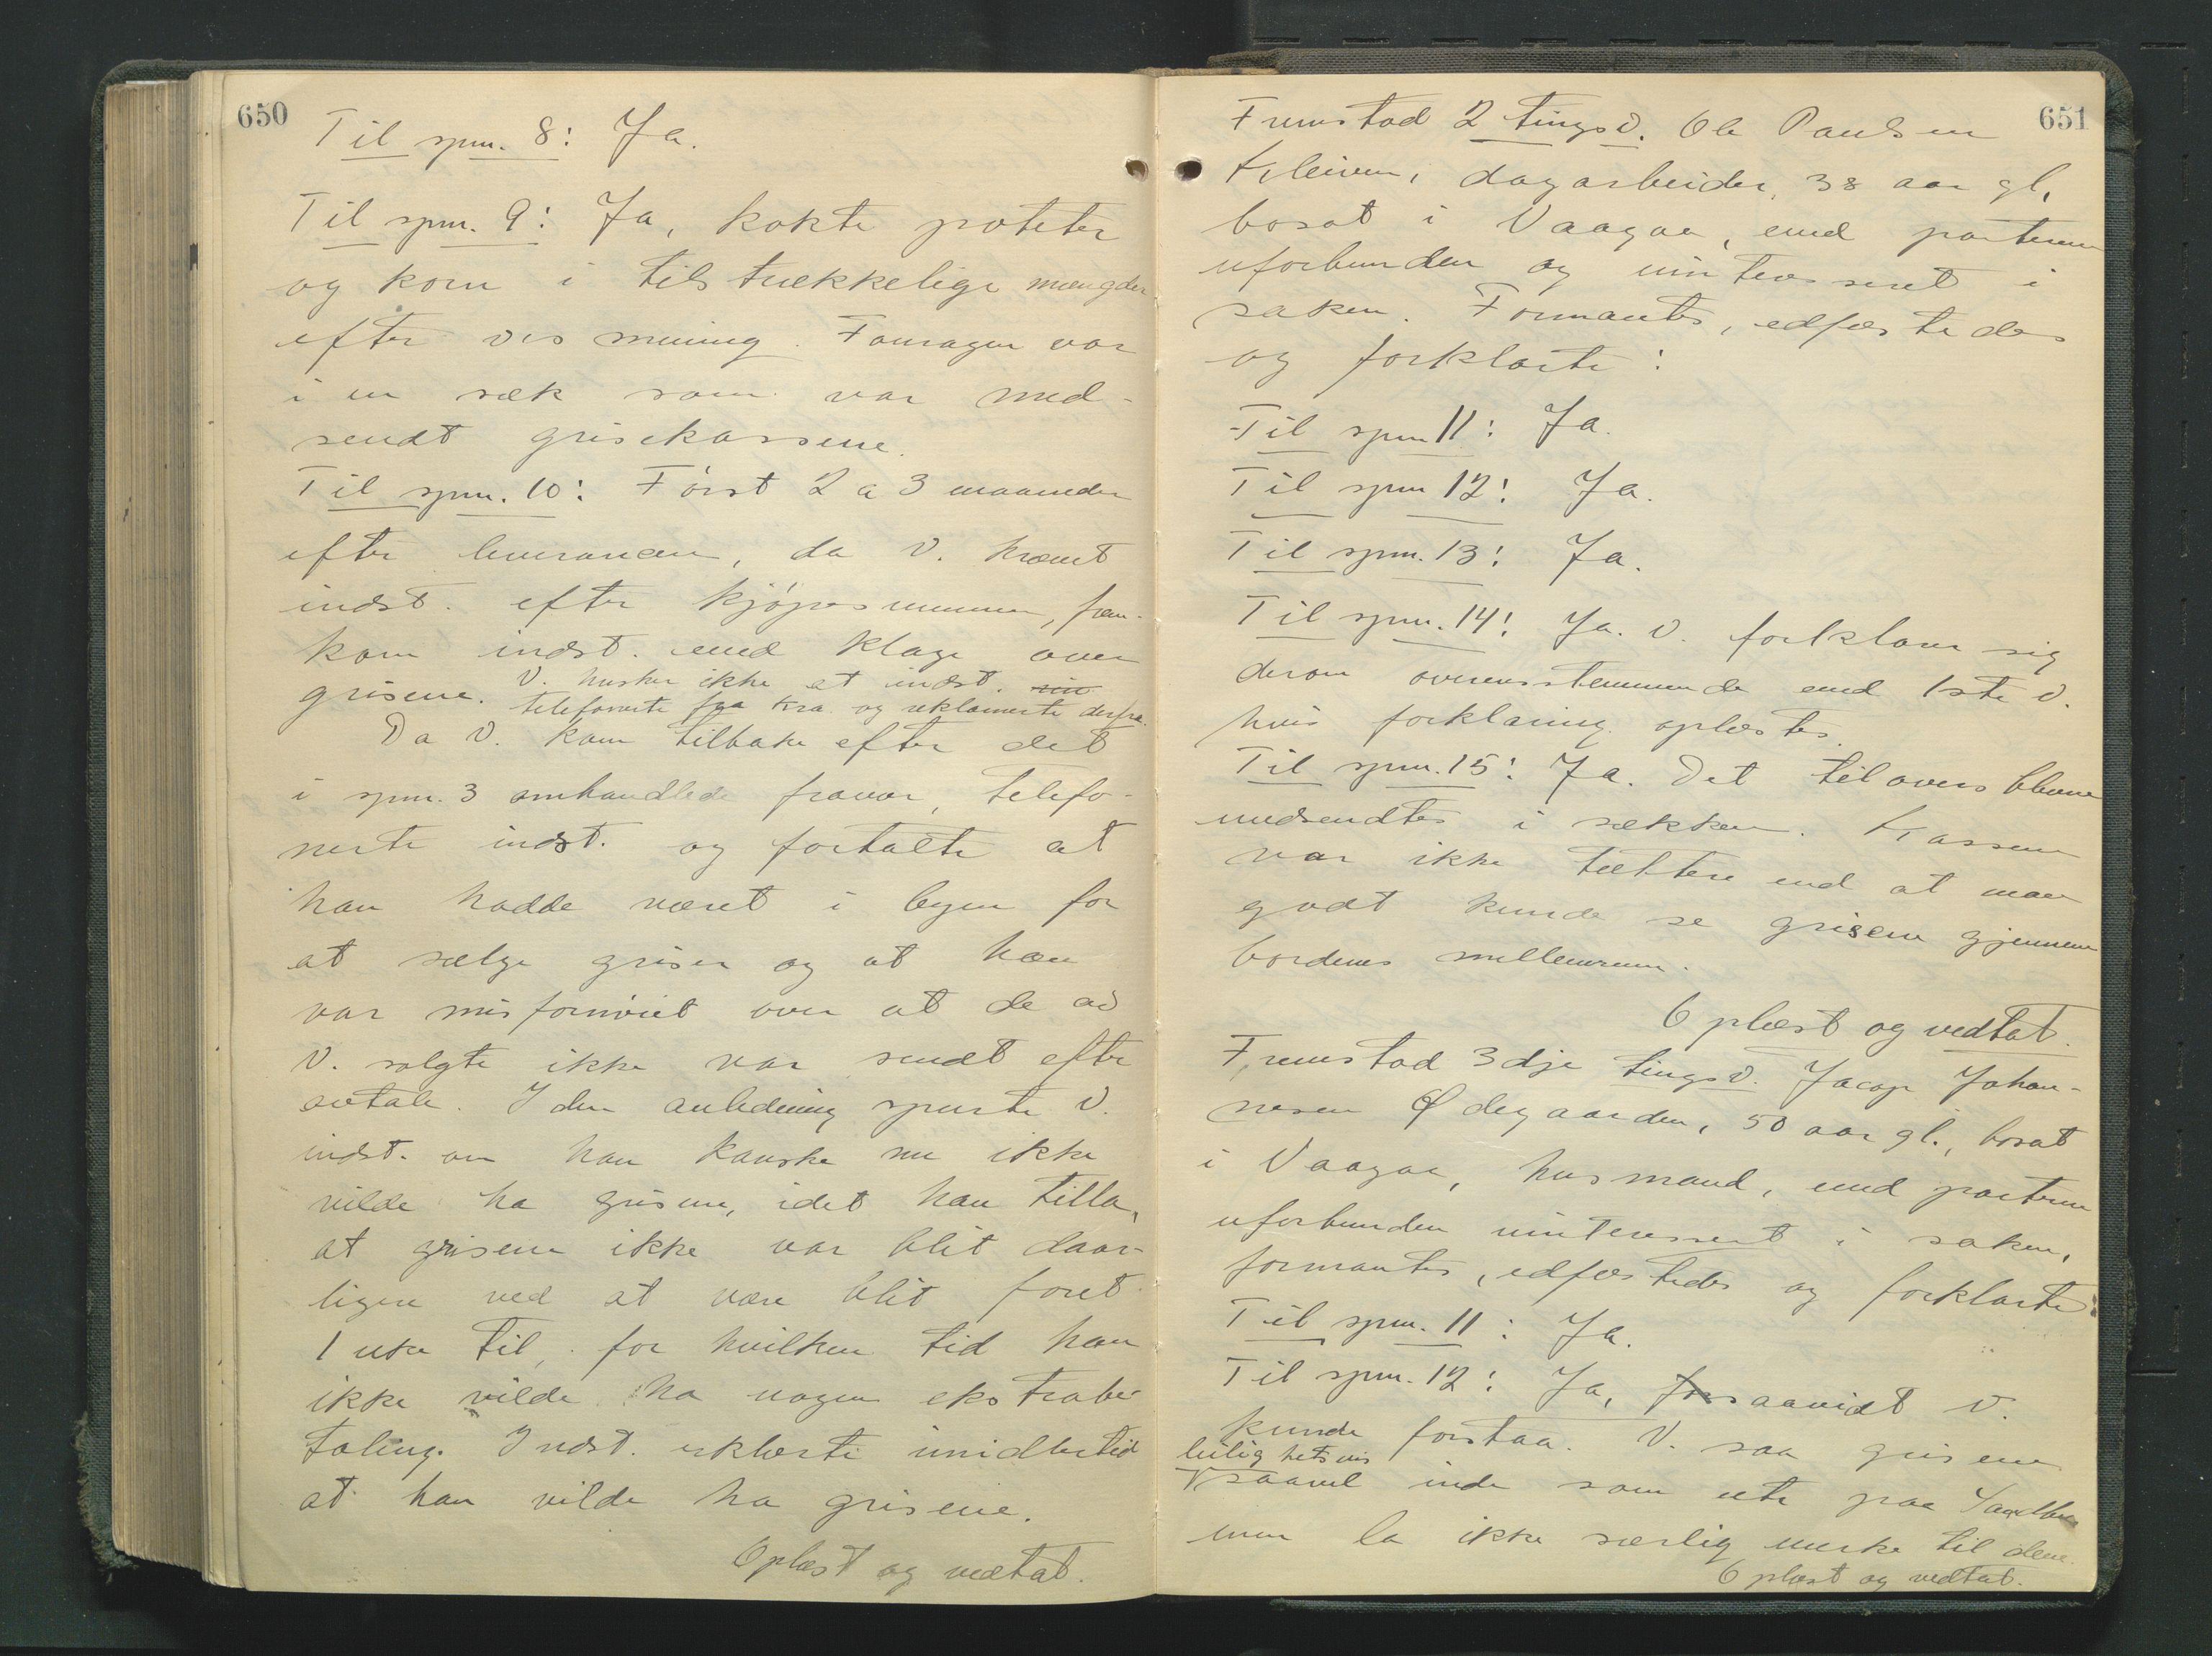 650
Til spm. 8: Ja.
Til spm. 9: Ja, kokte poteter
og korn i tilstrækkelige mængder
efter v's mening. Fouragen var
i en sæk som var med-
sendt grisekassene.
Til spm. 10: Først 2 a 3 maaneder
efter leverancen, da v. krævet
indst. efter kjøpesummen, frem-
kom indst. med klage over
grisene. V. husker ikke at indst.
telefonerte fra Kra. og reklamerte derfra.
Da v. kom tilbake efter det
i spm. 3 omhandlede fravær, telefo-
nerte indst. og fortalte at
han hadde været i byen for
at sælge griser og at han
var misfornøiet over at de av
V. solgte ikke var sendt efter
avtale. I den anledning spurte v.
indst. om han kanske nu ikke
vilde ha grisene, idet han tilla,
at grisene ikke var blit daar-
ligere ved at være blit foret
1 uke til, for hvilken tid han
ikke vilde ha nogen ekstrabe
taling. Indst. erklærte imidlertid
at han vilde ha grisene.
Oplæst og vedtat.
651
Fremstod 2 tingsv. Ole Paulsen
Kleiven, dagarbeider, 38 aar gl,
bosat i Vaagaa, med partene
uforbunden og uinteressert i
saken. Formantes, edfæstedes
og forklarte:
Til spm 11: Ja.
Til spm 12: Ja.
Til spm. 13: Ja.
Til spm. 14: Ja. V. forklarer sig
derom overensstemmende med 1ste v.
hvis forklaring oplæstes.
Til spm. 15: Ja. Det tilovers blevne
medsendtes i sækken. Kassene
var ikke tættere end at man
godt kunde se grisene gjennem
bordenes mellemrum.
Oplæst og vedtat.
Fremstod 3dje tingsv. Jacop Johan-
nesen Ødegaarden, 50 aar gl., bosat
i Vaagaa, husmand, med partene
uforbunden uinteressert i saken,
formantes, edfæstedes og forklarte:
Til spm. 11: Ja.
Til spm. 12: Ja, forsaavidt v.
kunde forstaa. V. saa grisene
leilighetsvis
saavel inde som ute paa Sandbu
men la ikke særlig merke til dem.
Oplæst og vedtat.